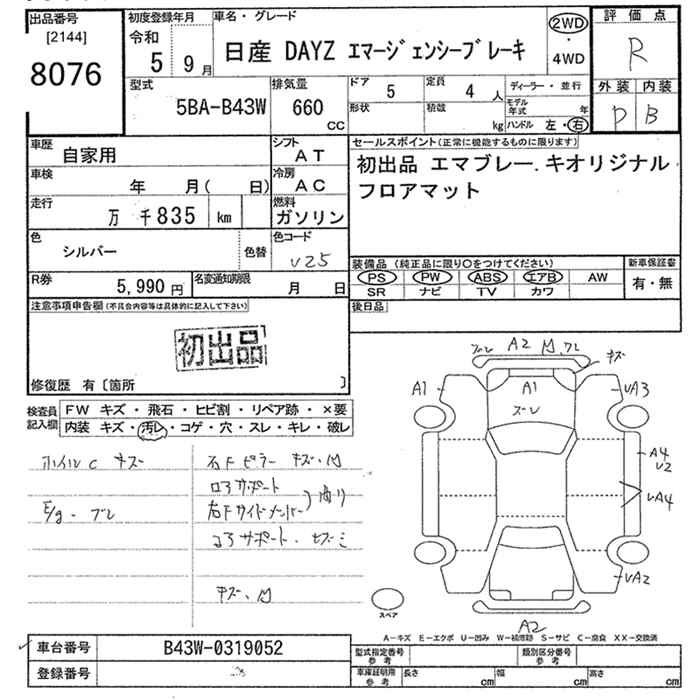 出品番号
[2144]
8076
初度登録年月
令和
5 9月
車名・グレード
日産 DAYZ エマージェンシーブレーキ
2WD
・
4WD
評価点
R
外装 内装
D B
型式
5BA-B43W
排気量
660
CC
ドア
5
定員
4人
形状
積載
kg
ディーラー・並行
モデル年式 年
ハンドル 左・右
車歴
自家用
シフト
AT
車検
年 月( 日)
冷房
AC
走行
万 千835 km
燃料
ガソリン
色
シルバー
色替
色コード
V25
R券
5,990円
名変通知期限
月 日
セールスポイント(正常に機能するものに限ります)
初出品 エマブレー.キオリジナル
フロアマット
装備品(純正品に限り○をつけてください)
PS PW ABS エアB AW
SR ナビ TV カワ
新車保証書
有・無
後日品
注意事項申告欄(不具合内容等は具体的に記入して下さい)
初出品
修復歴 有〔箇所 〕
検査員
記入欄
FW キズ・飛石・ヒビ割・リペア跡・×要
内装 キズ・汚レ・コゲ・穴・スレ・キレ・破レ
ホイルC キズ
E/g- ブレ
右Fピラー キズ、凹
コアサポート
右Fサイドメンバー
曲り
コアサポート・ヒズミ
キズ、凹
ズレ A2 凹、ワレ
キズ
A1
A1
ズレ
UA3
A4
U2
UA4
UA2
A2
スペア
A-キズ E-エクボ U-凹み W-補修跡 S-サビ C-腐食 XX-交換済
車台番号
B43W-0319052
登録番号
型式指定番号
参考
類別区分番号
参考
車庫証明用
参考
長さ cm
幅 cm
高さ cm